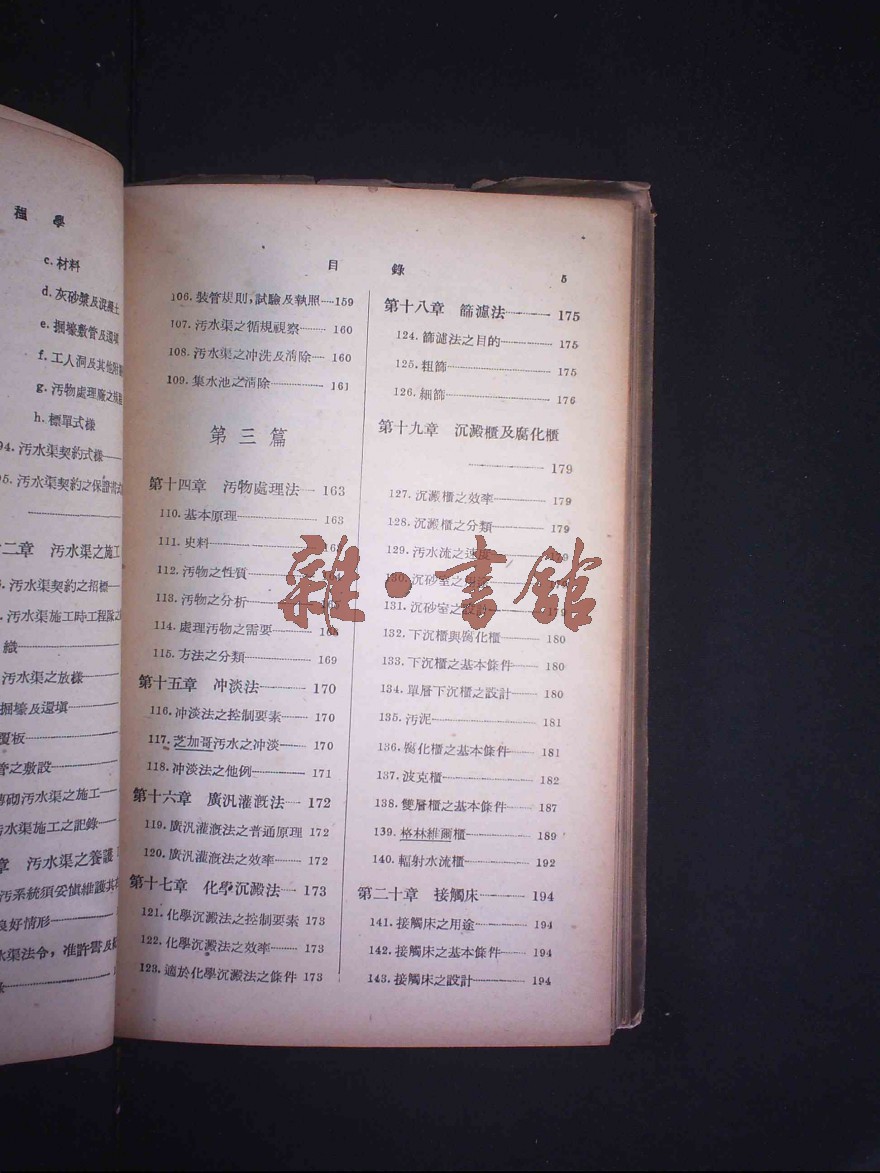 程學
c. 材料
d. 灰砂漿及混凝土
e. 掘壕敷管及還填
f. 工人洞及其他附
g. 污物處理廠之
h. 標單式樣
94. 污水渠契約式樣
95. 污水渠契約之保證書式
二章 污水渠之施工
污水渠契約之招標
污水渠施工時工程隊之
織
污水渠之放樣
掘壕及還填
覆板
管之敷設
磚砌污水渠之施工
污水渠施工之記錄
章 污水渠之養護
污系統須妥慎維護其
良好情形
水渠法令，准許書及
目錄 5
106. 裝管規則，試驗及執照 159
107. 污水渠之循規視察 160
108. 污水渠之冲洗及清除 160
109. 集水池之清除 161
第三篇
第十四章 污物處理法 163
110. 基本原理 163
111. 史料
112. 污物之性質
113. 污物之分析
114. 處理汚物之需要
115. 方法之分類 169
第十五章 冲淡法 170
116. 冲淡法之控制要素 170
117. 芝加哥污水之冲淡 170
118. 冲淡法之他例 171
第十六章 廣汎灌漑法 172
119. 廣汎灌漑法之普通原理 172
120. 廣汎灌漑法之效率 172
第十七章 化學沉澱法 173
121. 化學沉澱法之控制要素 173
122. 化學沉澱法之效率 173
123. 適於化學沉澱法之條件 173
第十八章 篩濾法 175
124. 篩濾法之目的 175
125. 粗篩 175
126. 細篩 176
第十九章 沉澱櫃及腐化櫃
179
127. 沉澱櫃之效率 179
128. 沉澱櫃之分類 179
129. 污水流之速度 179
130. 沉砂室之
131. 沉砂室之設計 179
132. 下沉櫃與腐化櫃 180
133. 下沉櫃之基本條件 180
134. 單層下沉櫃之設計 180
135. 污泥 181
136. 腐化櫃之基本條件 181
137. 波克櫃 182
138. 雙層櫃之基本條件 187
139. 格林維爾櫃 189
140. 輻射水流櫃 192
第二十章 接觸床 194
141. 接觸床之用途 194
142. 接觸床之基本條件 194
143. 接觸床之設計 194
雜·書館